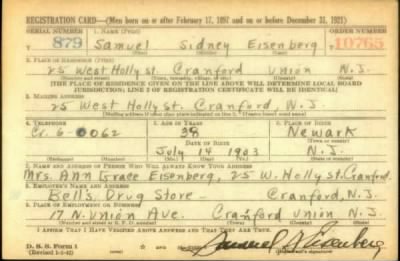 REGISTRATION CARD—(Men born on or after February 17, 1897 and on or before December 31, 1921)
SERIAL NUMBER 1. NAME (Print) ORDER NUMBER
879 Samuel Sidney Eisenberg 10765
2. PLACE OF RESIDENCE (Print)
25 West Holly st. Cranford Union N.J.
(Number and street) (Town, township, village, or city) (County) (State)
[THE PLACE OF RESIDENCE GIVEN ON THE LINE ABOVE WILL DETERMINE LOCAL BOARD
JURISDICTION; LINE 2 OF REGISTRATION CERTIFICATE WILL BE IDENTICAL]
3. MAILING ADDRESS
25 West Holly st. Cranford, N.J.
4. TELEPHONE 5. AGE IN YEARS 6. PLACE OF BIRTH
Cr. 6-0062 38 Newark
DATE OF BIRTH (Town or county)
July 14 1903 N.J.
(Exchange) (Number) (Mo.) (Day) (Yr.) (State or country)
7. NAME AND ADDRESS OF PERSON WHO WILL ALWAYS KNOW YOUR ADDRESS
Mrs. Ann Grace Eisenberg, 25 W. Holly st. Cranford.
8. EMPLOYER'S NAME AND ADDRESS
Bell's Drug Store Cranford, N.J.
9. PLACE OF EMPLOYMENT OR BUSINESS
17 N. Union Ave. Cranford Union N.J.
(Number and street or R. F. D. number) (Town) (County) (State)
I AFFIRM THAT I HAVE VERIFIED ABOVE ANSWERS AND THAT THEY ARE TRUE.
D. S. S. Form 1
(Revised 1-1-42) (over) Samuel S. Eisenberg